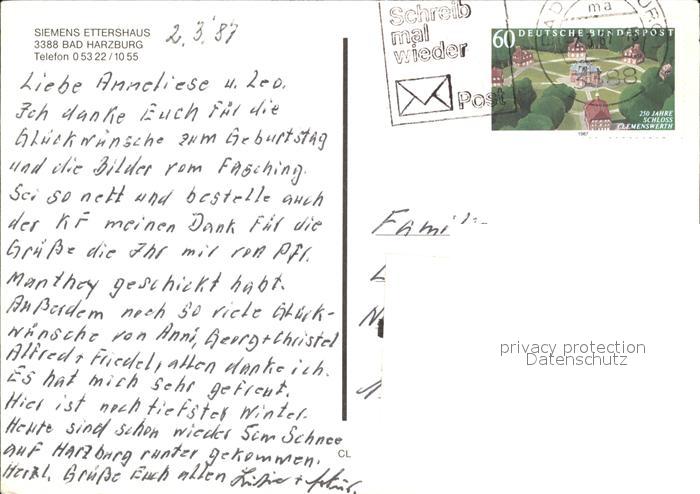 SIEMENS ETTERSHAUS
3388 BAD HARZBURG
Telefon 0 53 22 / 10 55
2.3.87
Liebe Anneliese u. Leo.
Ich danke Euch für die
Glückwünsche zum Geburtstag
und die Bilder vom Fasching.
Sei so nett und bestelle auch
der KF meinen Dank für die
Grüße die Ihr mir von Pfr.
Manthey geschickt habt.
Außerdem noch so viele Glück-
wünsche von Anni, Georg+Christel
Alfred + Friedel, allen danke ich.
Es hat mich sehr gefreut.
Hier ist noch tiefster Winter.
Heute sind schon wieder 5cm Schnee
auf Harzburg runter gekommen.
Herzl. Grüße Euch allen
CL
Schreib
mal
wieder
Post
ma
3388
60 DEUTSCHE BUNDESPOST
250 JAHRE
SCHLOSS
CLEMENSWERTH
1987
Fami
privacy protection
Datenschutz